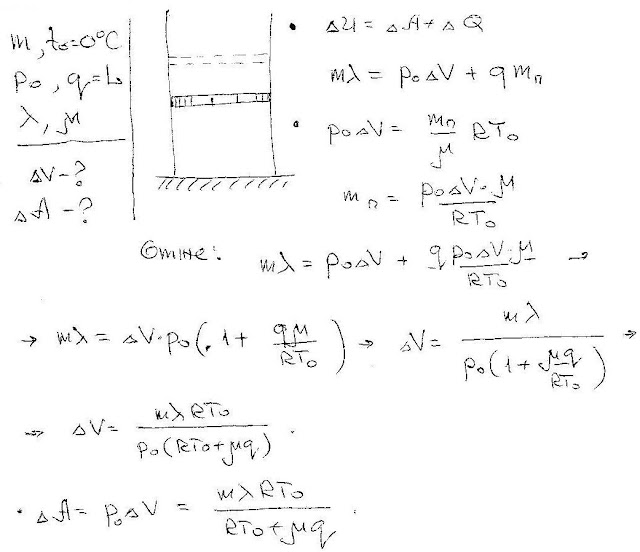 m, t₀=0°C
p₀, q=L
λ, μ
ΔV-?
ΔA-?
• ΔU = ΔA + ΔQ
mλ = p₀ΔV + q mₙ
• p₀ΔV = mₙ/μ RT₀
mₙ = p₀ΔV·μ/RT₀
Отже: mλ = p₀ΔV + q p₀ΔV·μ/RT₀ →
→ mλ = ΔV·p₀(1 + qμ/RT₀) → ΔV = mλ/p₀(1 + μq/RT₀) →
→ ΔV = mλRT₀/p₀(RT₀+μq).
• ΔA = p₀ΔV = mλRT₀/RT₀+μq.